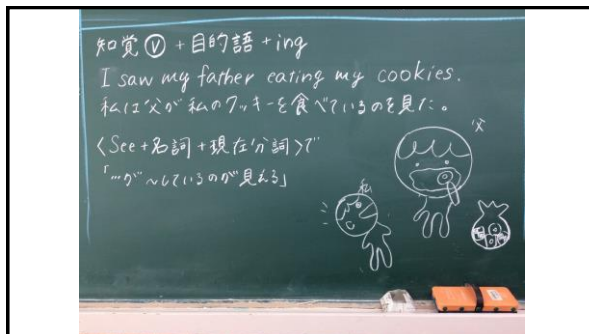 知覚Ⓥ+目的語+ing
I saw my father eating my cookies.
私は父が私のクッキーを食べているのを見た。
〈See+名詞+現在分詞〉で
「…が〜しているのが見える」
父
私